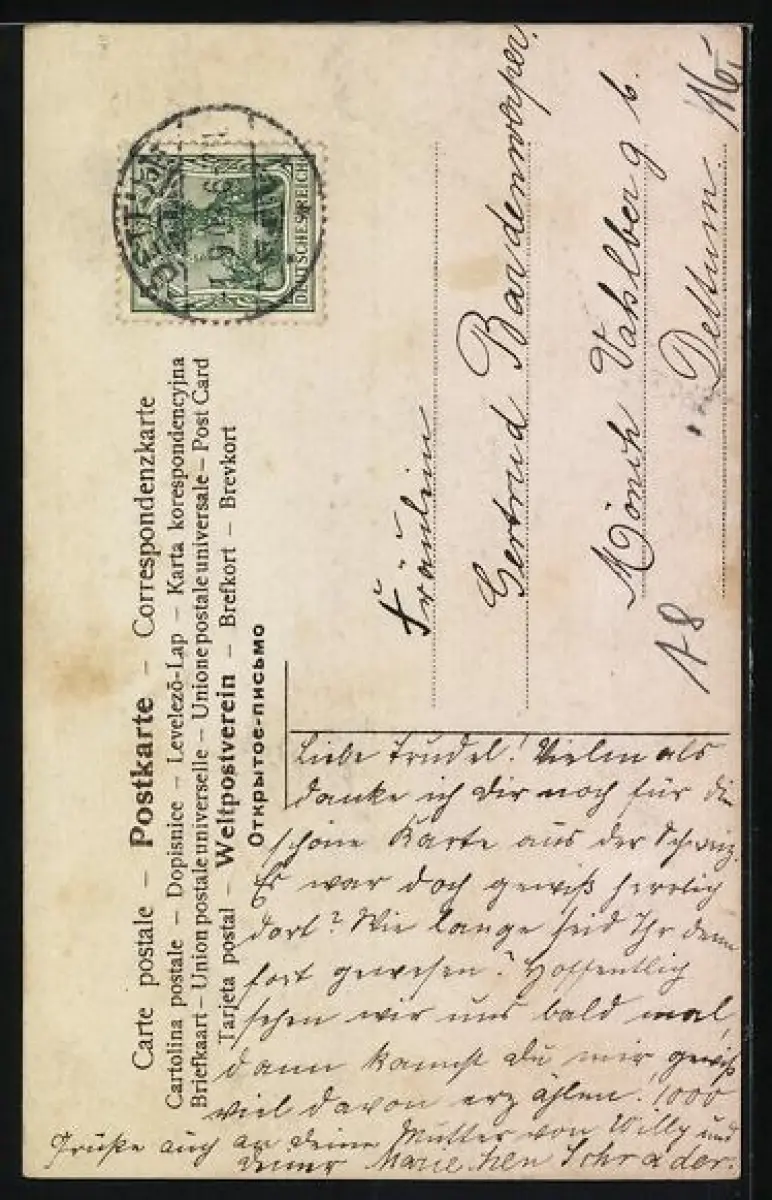 DEUTSCHES REICH
Carte postale – Postkarte – Correspondenzkarte
Cartolina postale – Dopisnice – Levelezö-Lap – Karta korespondencyjna
Briefkaart – Union postale universelle – Unione postale universale – Post Card
Tarjeta postal – Weltpostverein – Brefkort – Brevkort
Открытое-письмо
Fräulein
Gertrud Bardenwerper.
Mönch Vahlberg b.
Dettum.
A8
Liebe Trudel! Vielmals
danke ich Dir noch für die
schöne Karte aus der Schweiz.
Es war doch gewiß herrlich
dort? Wie lange seid Ihr denn
fort gewesen? Hoffentlich
sehen wir uns bald mal,
dann kannst Du mir gewiß
viel davon erzählen. 1000
Grüße auch an Deine Mutter von Willy und
Deiner Mariechen Schrader.